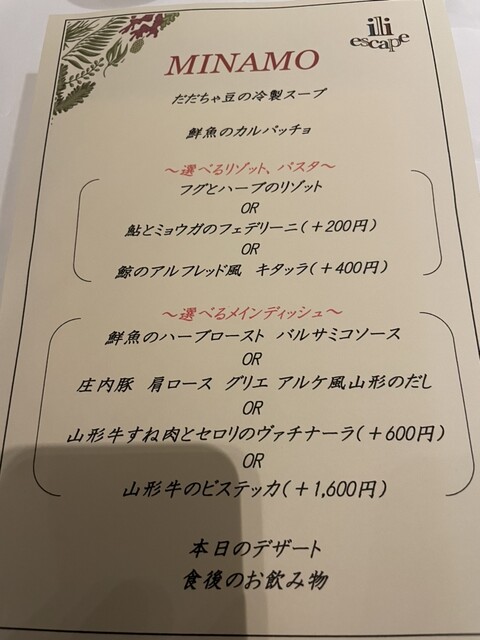 ili
escape
MINAMO
だだちゃ豆の冷製スープ
鮮魚のカルパッチョ
～選べるリゾット、パスタ～
フグとハーブのリゾット
OR
鮎とミョウガのフェデリーニ(＋200円)
OR
鯨のアルフレッド風 キタッラ(＋400円)
～選べるメインディッシュ～
鮮魚のハーブロースト バルサミコソース
OR
庄内豚 肩ロース グリエ アルケ風山形のだし
OR
山形牛すね肉とセロリのヴァチナーラ(＋600円)
OR
山形牛のビステッカ(＋1,600円)
本日のデザート
食後のお飲み物